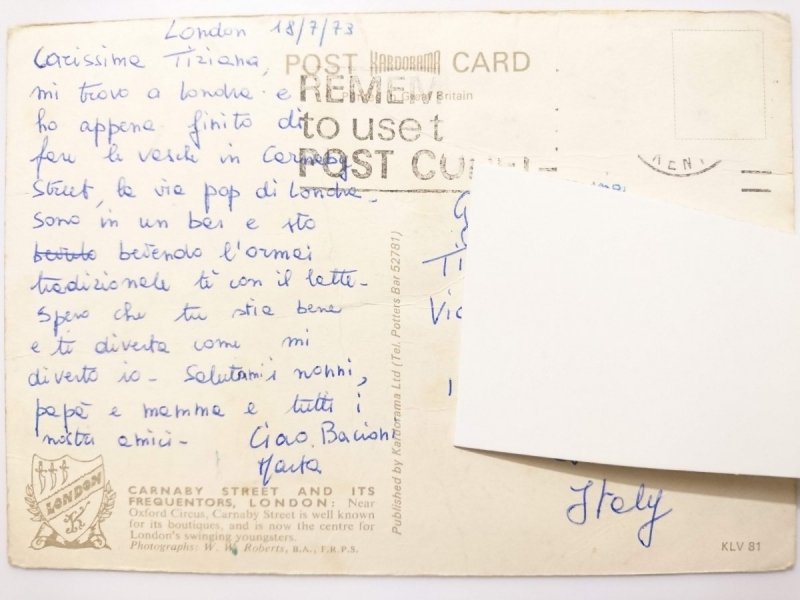 London 18/7/73
Carissima Tiziana,
mi trovo a Londra e
ho appena finito di
fare le vasche in Carnaby
Street, la via pop di Londra -
Sono in un bar e sto
bevendo l'ormai
tradizionale tè con il latte -
Spero che tu stia bene
e ti diverta come mi
diverto io - Salutami i nonni,
papà e mamma e tutti i
nostri amici - Ciao. Bacioni
Marta
POST KARDORAMA CARD
Printed in Great Britain
REMEM
to use t
POST CO
Published by Kardorama Ltd (Tel. Potters Bar 52781)
Italy
LONDON
CARNABY STREET AND ITS
FREQUENTORS, LONDON: Near
Oxford Circus, Carnaby Street is well known
for its boutiques, and is now the centre for
London's swinging youngsters.
Photographs: W. W. Roberts, B.A., F.R.P.S.
KLV 81